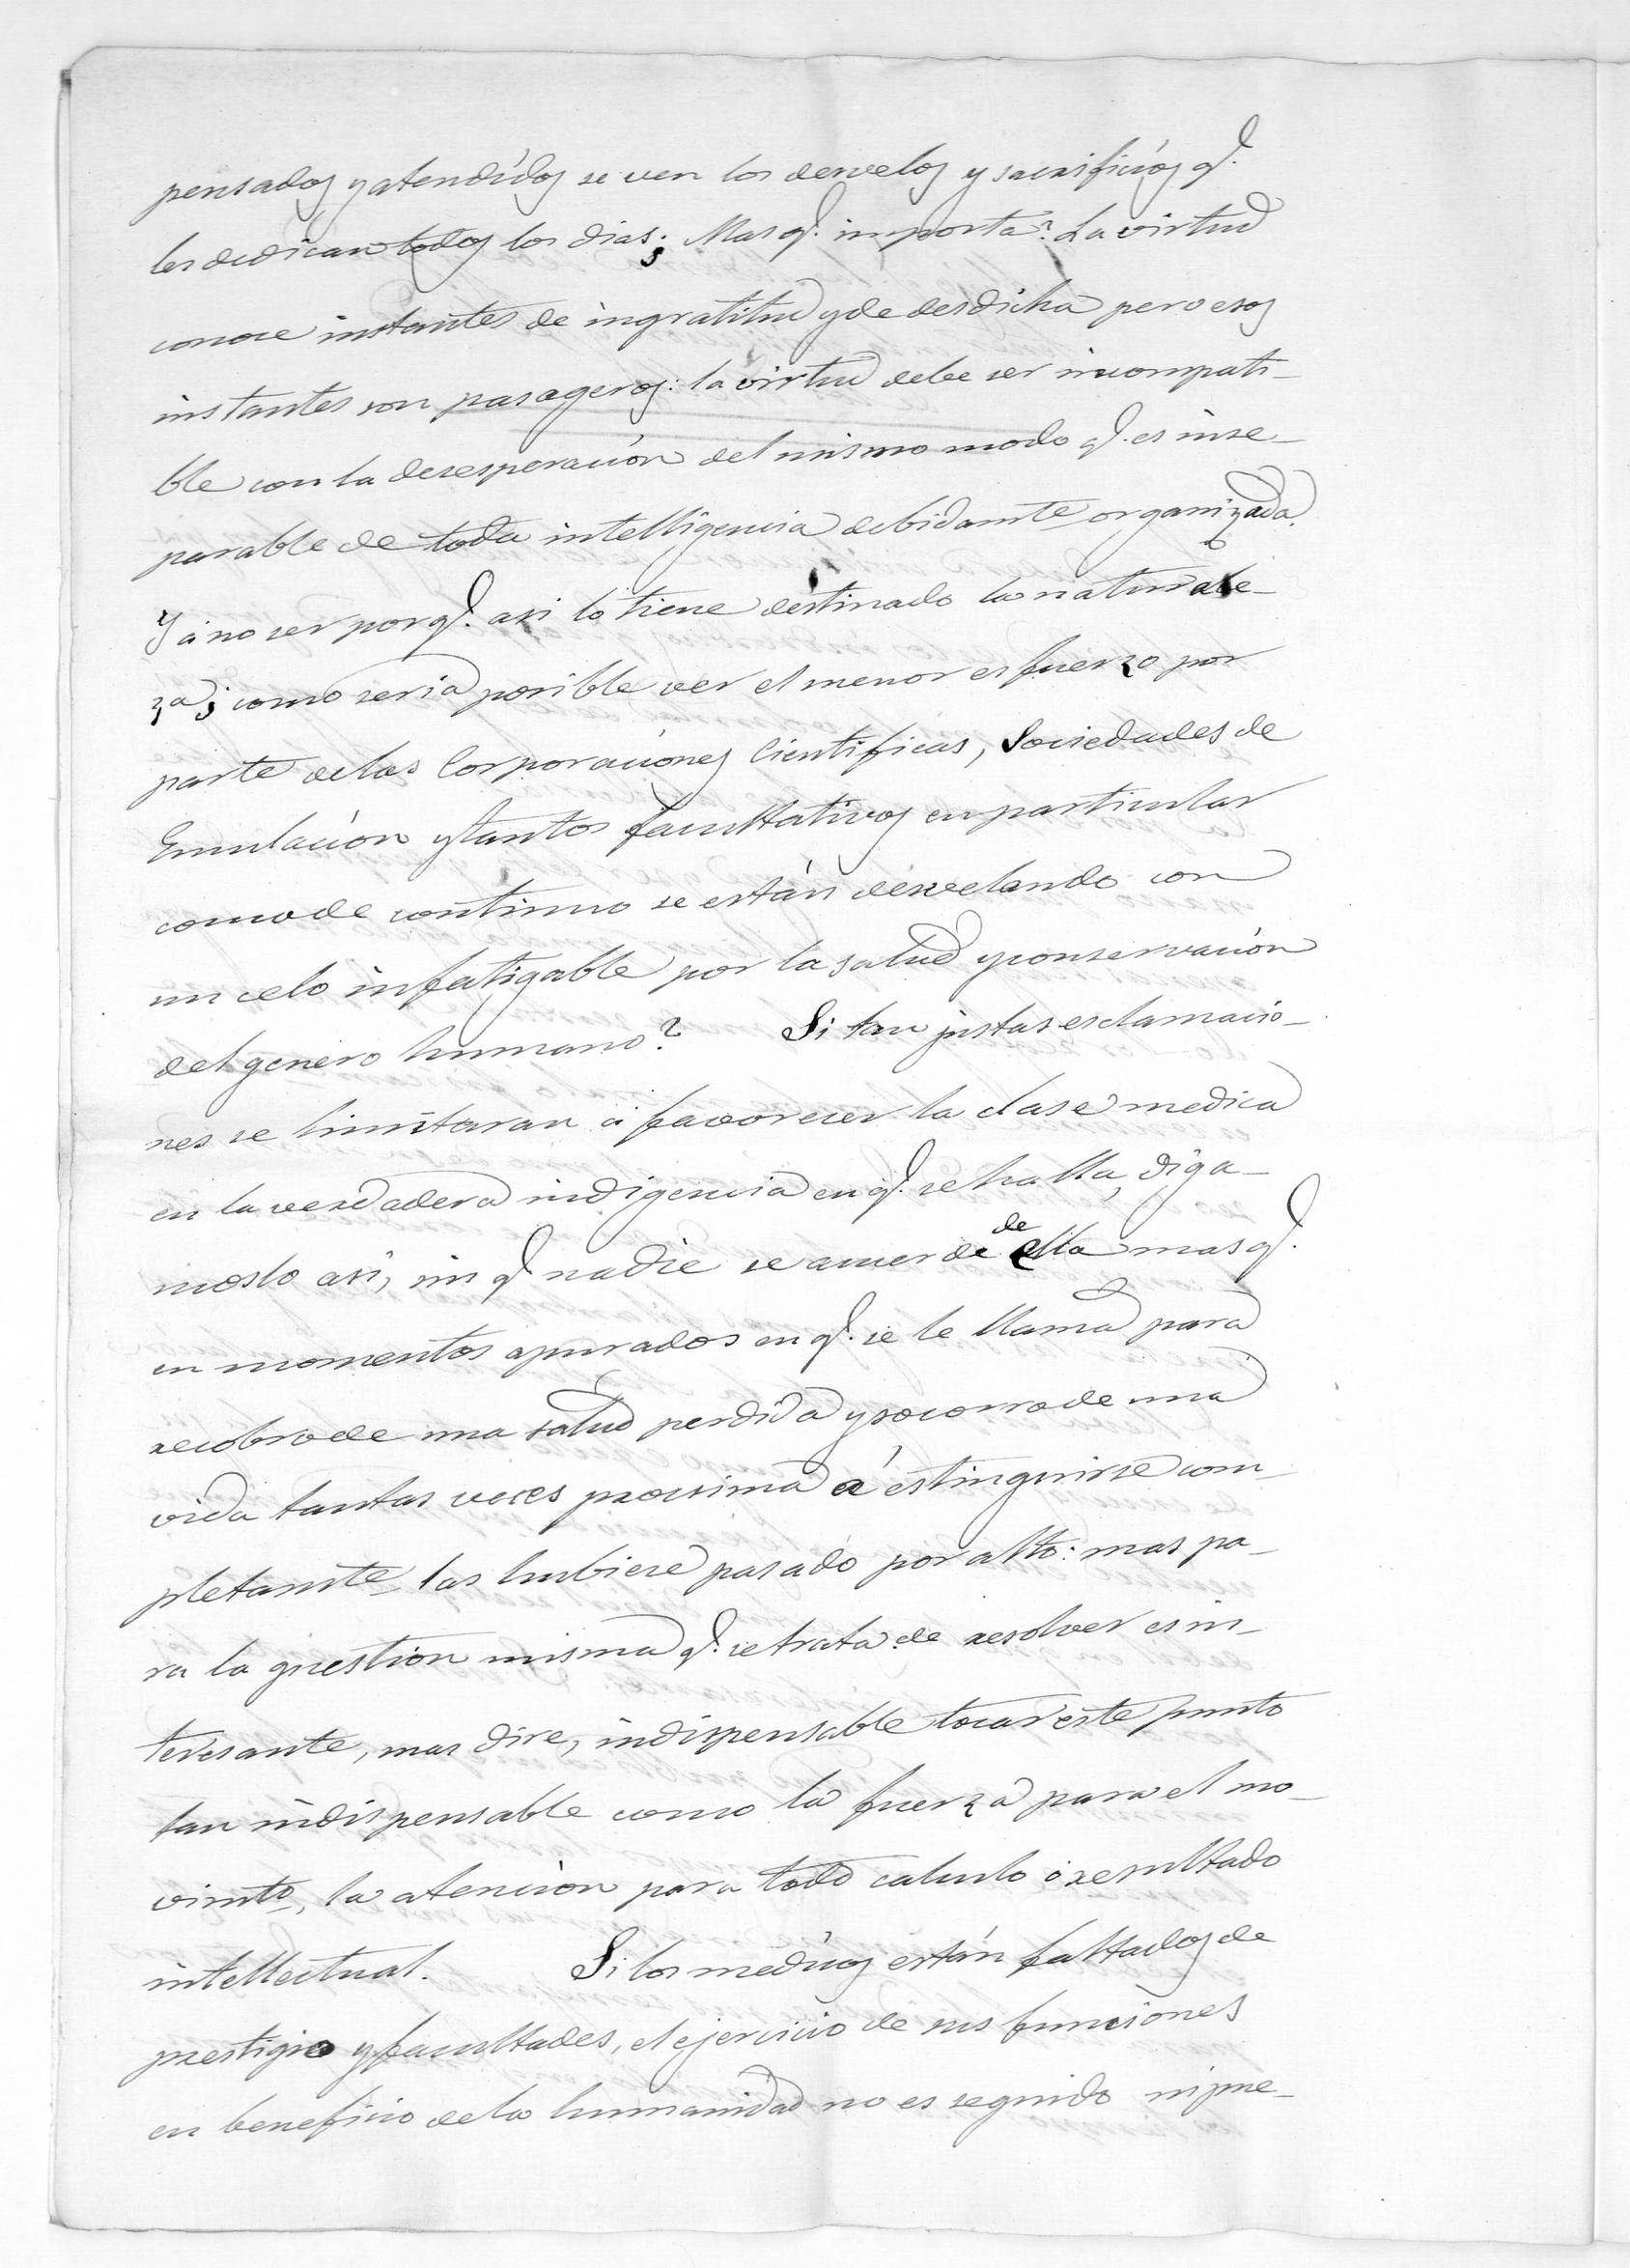 pensados y atendidos se ven los desvelos y sacrificios q.
les dedican todos los dias; Mas q. importa? La virtud
conoce instantes de ingratitud y de desdicha pero esos
instantes son pasageros: la virtud debe ser incompati-
ble con la desesperación del mismo modo q. es inse-
parable de toda intelligencia debidamte organizada.
Y á no ser porq. asi lo tiene destinado la naturale-
za; como seria posible ver el menor esfuerzo por
parte de las Corporaciones Cientificas, Sociedades de
Emulación y tantos facultativos en particular
como de continuo se están desvelando con
un celo infatigable por la salud y conservación
del genero humano? Si tan justas esclamacio-
nes se limitaran á favorecer la clase medica
en la verdadera indigencia en q. se halla, diga-
moslo asi, sin q. nadie se acuerde de ella mas q.
en momentos apurados en q. se le llama para
recobro de una salud perdida y socorro de una
vida tantas veces procsima á estinguirse com-
pletamte las hubiese pasado por alto: mas pa-
ra la question misma q. se trata de resolver es in-
teresante, mas dire, indispensable tocar este punto
tan indispensable como la fuerza para el mo-
vimto, la atención para todo calculo ó resultado
intellectual. Si los medicos están faltados de
prestigio y facultades, el ejercicio de sus funciones
en beneficio de la humanidad no es seguido ni pue-